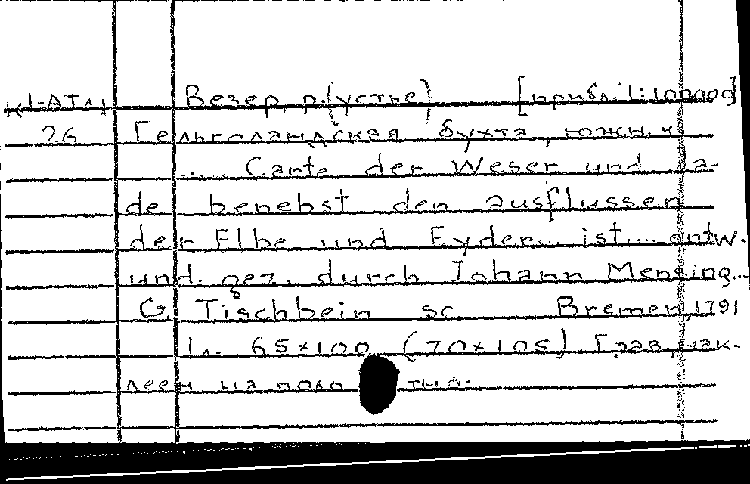 К1-Атл Везер, р. (устье) [прибл. 1:100000]
26 Гельголандская бухта, южн. ч.
..... Carte der Weser und Ja-
de benebst den ausflussen
der Elbe und Eyder... ist.... entw.
und gez. durch Johann Mensing...
G. Tischbein sc. Bremen, 1791
1 л. 65×100 (70×105) Грав., нак-
леен на поло тно.